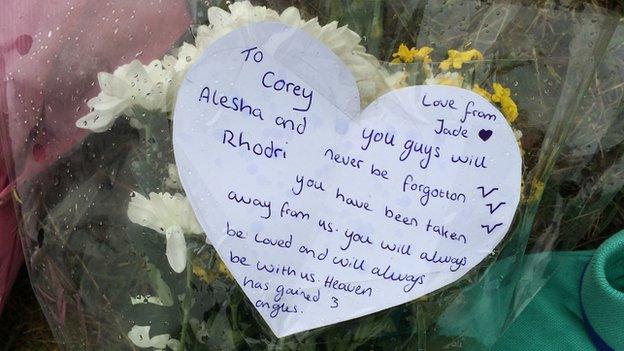 To
Corey
Alesha and
Rhodri
Love from
Jade ♥
you guys will
never be forgotton
you have been taken
away from us. you will always
be loved and will always
be with us. Heaven
has gained 3
angles.